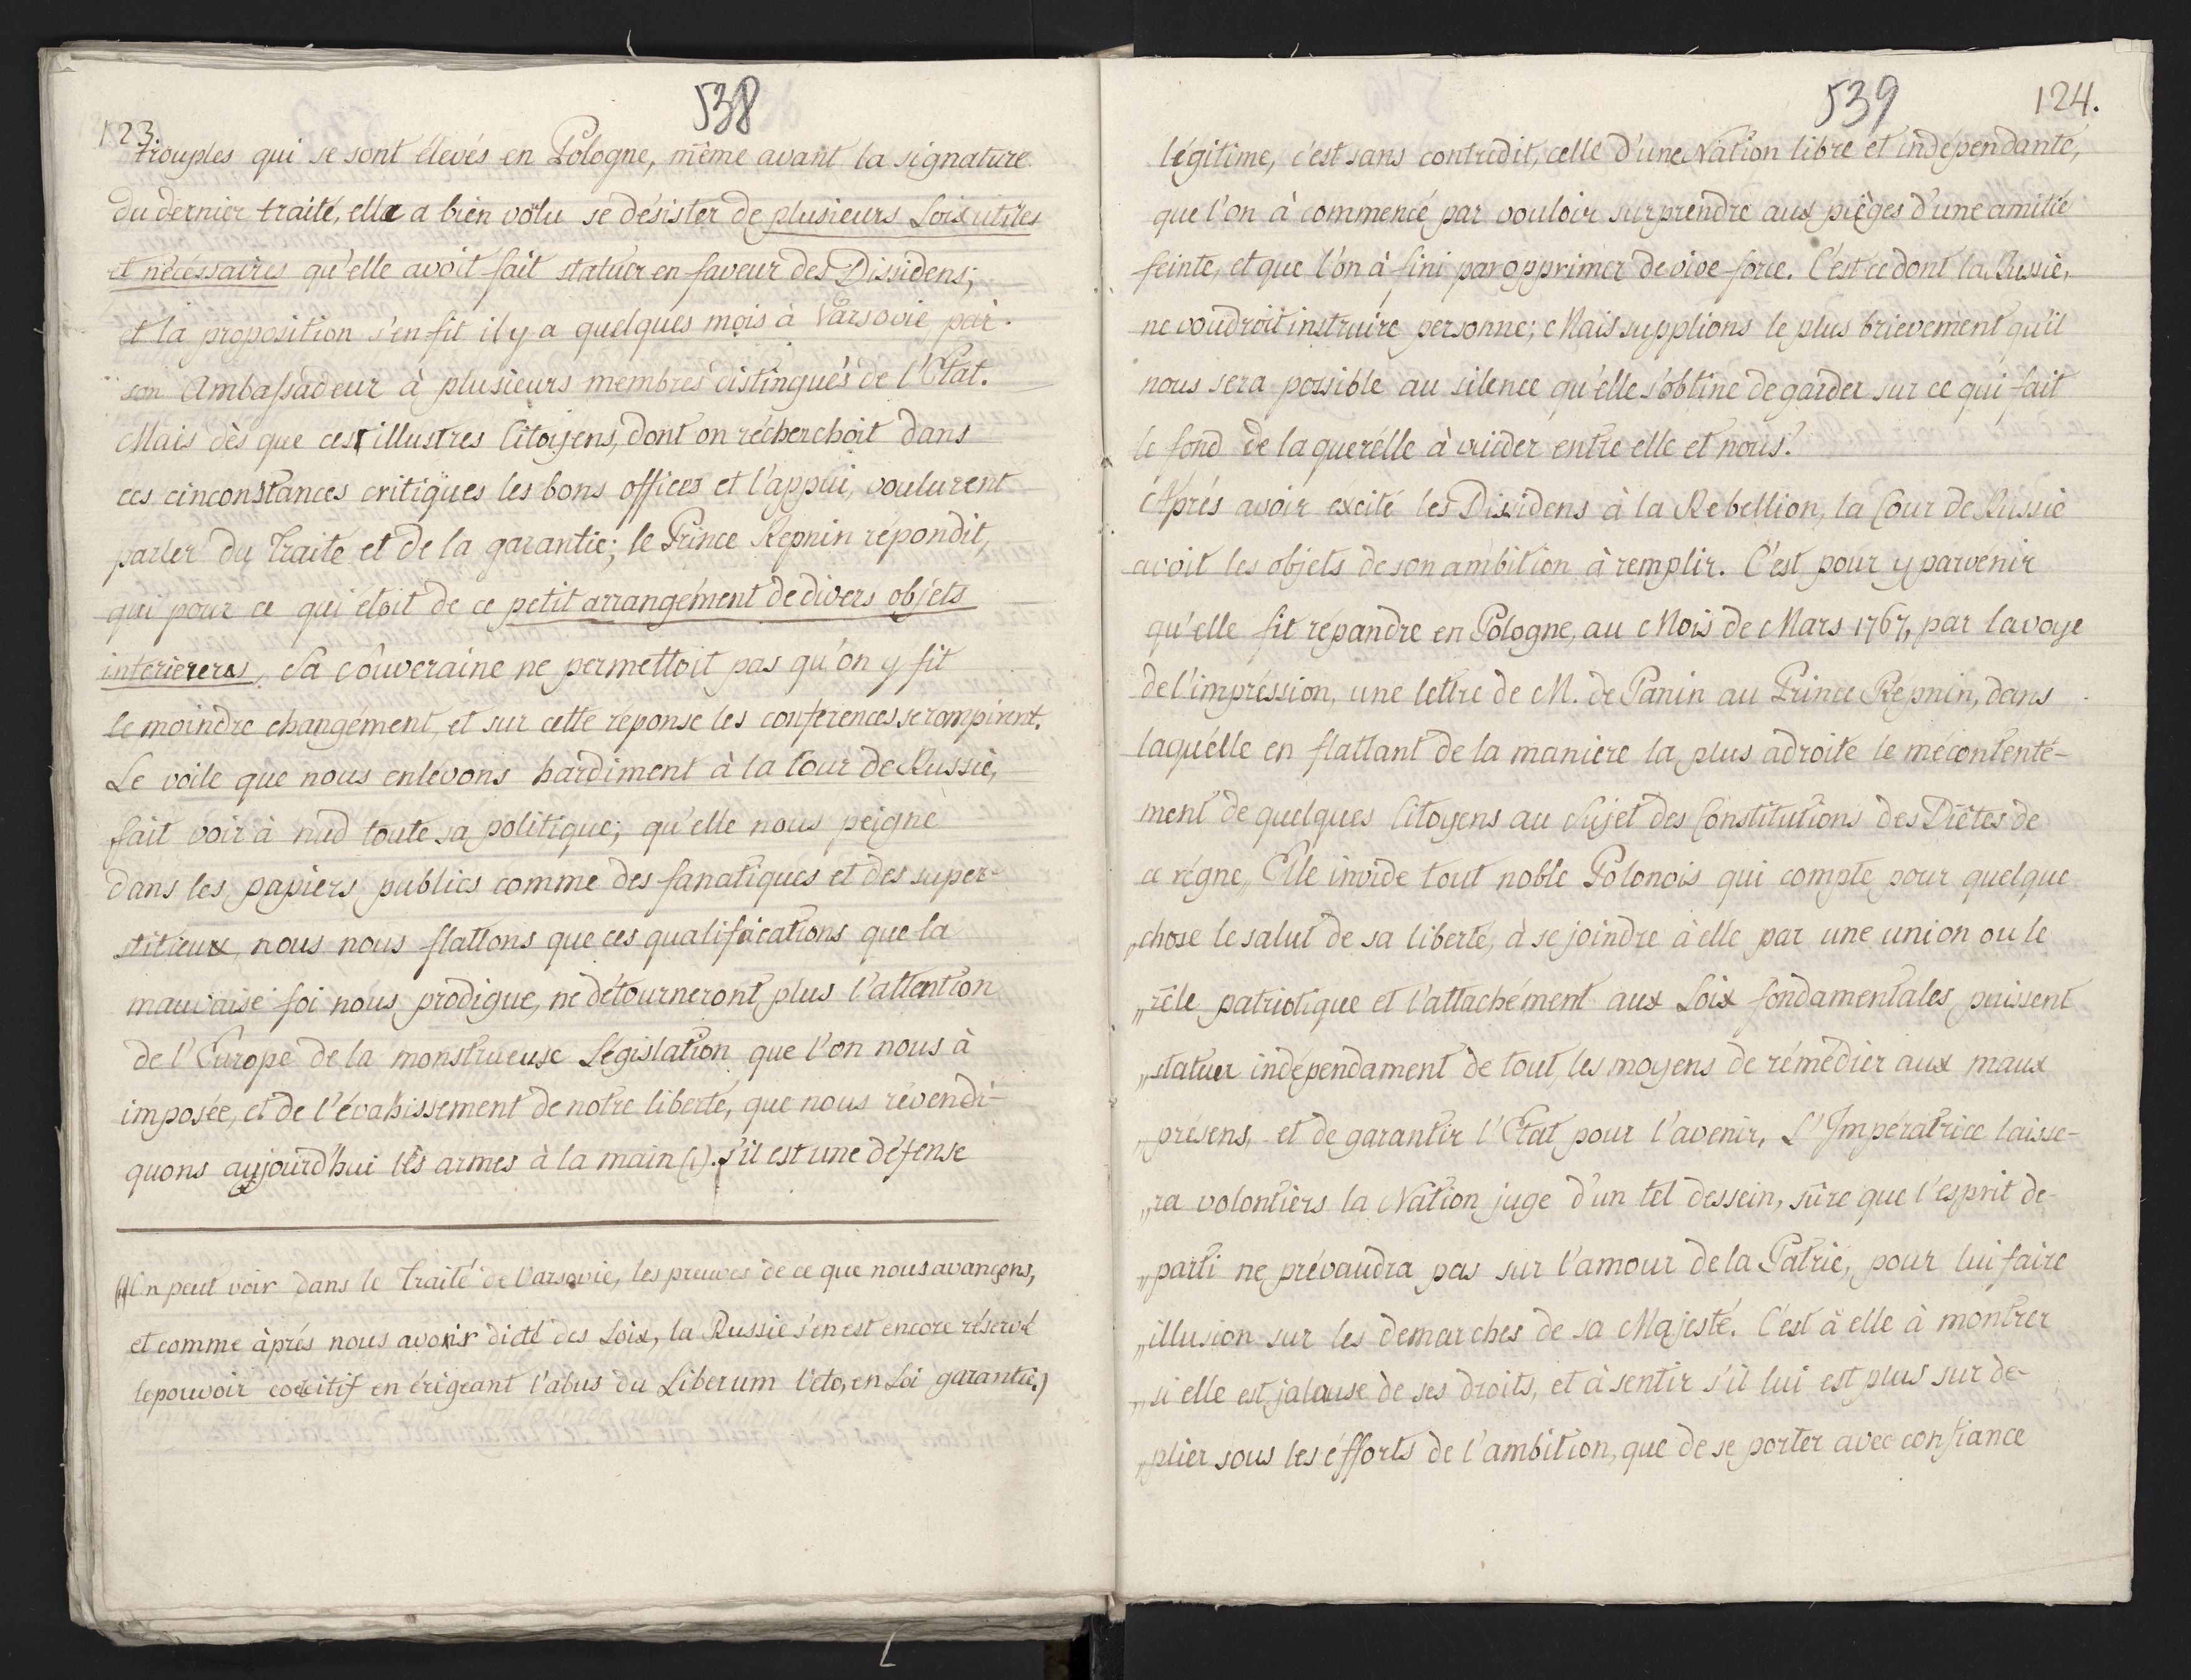 538
123.
trouples qui se sont élevés en Pologne, même avant la signature
du dernier traité, elle a bien völu se désister de plusieurs Loix utiles
et nécéssaires qu'elle avoit fait statuer en faveur des Dissidens;
et la proposition s'en fit il y a quelques mois à Varsovie par
son Ambassadeur à plusieurs membres distingués de l'Etat.
Mais dès que ces illustres Citoyens, dont on récherchoit dans
ces cinconstances critiques les bons offices et l'appui, voulurent
parler du Traité et de la garantie; le Prince Repnin répondit,
qui pour ce qui étoit de ce petit arrangément de divers objéts
interierers, Sa Souveraine ne permettoit pas qu'on y fit
le moindre changément, et sur cette réponse les conferences se rompirent.
Le voile que nous enlévons hardiment à la Cour de Russie,
fait voir à nud toute sa politique; qu'elle nous peigne
dans les papiers publics comme des fanatiques et des super-
stitieux, nous nous flattons que ces qualifications que la
mauvaise foi nous prodigue, ne détourneront plus l'attention
de l'Europe de la monstrueuse Législation que l'on nous à
imposée, et de l'évahissement de notre liberté, que nous révendi-
quons aujourd'hui les armes à la main (1). s'il est une défense
(1) On peut voir dans le Traité de Varsovie, les preuves de ce que nous avançons,
et comme àprés nous avoir dicté des Loix, la Russie s'en est encore réservé
le pouvoir coercitif en érigeant l'abus du Liberum Veto, en Loi garantie.)
539
124.
légitime, c'est sans contredit, celle d'une Nation libre et indépendante,
que l'on à commencé par vouloir surprendre aux pièges d'une amitié
feinte, et que l'on à fini par opprimer de vive force. C'est ce dont la Russie,
ne voudroit instruire personne; Mais supplions le plus brievement qu'il
nous sera possible au silence qu'elle s'obtine de garder sur ce qui fait
le fond de la querélle à vuider entre elle et nous.
Aprés avoir excité les Dissidens à la Rebellion, la Cour de Russie
avoit les objets de son ambition à remplir. C'est pour y parvenir
qu'elle fit répandre en Pologne, au Mois de Mars 1767, par la voye
de l'impréssion, une lettre de M. de Panin au Prince Repnin, dans
laquélle en flattant de la maniere la plus adroite le mécontenté-
ment de quelques Citoyens au Sujet des Constitutions des Diètes de
ce régne „ Elle invide tout noble Polonois qui compte pour quelque
„chose le salut de sa liberté, à se joindre à elle par une union ou le
„rêle patriotique et l'attachément aux Loix fondamentales puissent
„statuer indépendament de tout, les moyens de rémédier aux maux
„présens, et de garantir l'Etat pour l'avenir, L'Impératrice laisse-
„ra volontiers la Nation juge d'un tel dessein, sûre que l'esprit de
„parti ne prévaudra pas sur l'amour de la Patrie, pour lui faire
„illusion sur les demarches de sa Majesté. C'est à elle à montrer
„si elle est jalouse de ses droits, et à sentir s'il lui est plus sur de
„plier sous les éfforts de l'ambition, que de se porter avec confiance